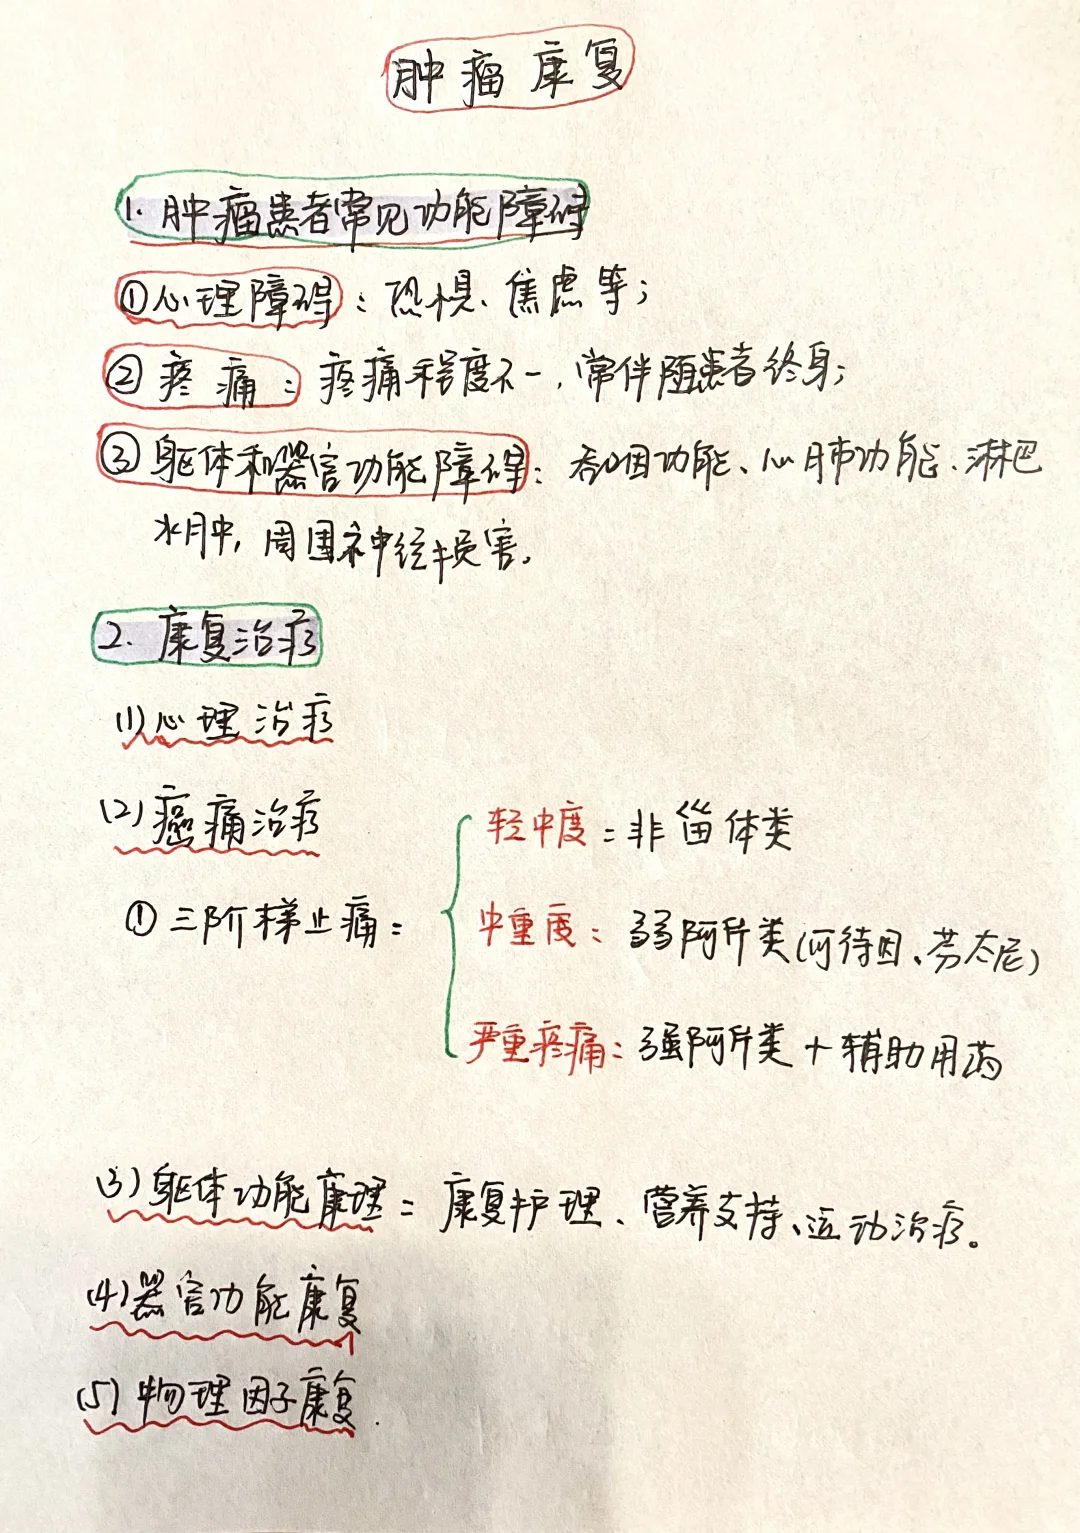 肿瘤康复
1. 肿瘤患者常见功能障碍
①心理障碍：恐惧、焦虑等；
②疼痛：疼痛程度不一，常伴随患者终身；
③躯体和器官功能障碍：吞咽功能、心肺功能、淋巴
水肿，周围神经损害。
2. 康复治疗
(1)心理治疗
(2)癌痛治疗
轻中度：非甾体类
①三阶梯止痛：
中重度：弱阿片类(可待因、芬太尼)
严重疼痛：强阿片类+辅助用药
(3)躯体功能康理：康复护理、营养支持、运动治疗。
(4)器官功能康复
(5)物理因子康复.